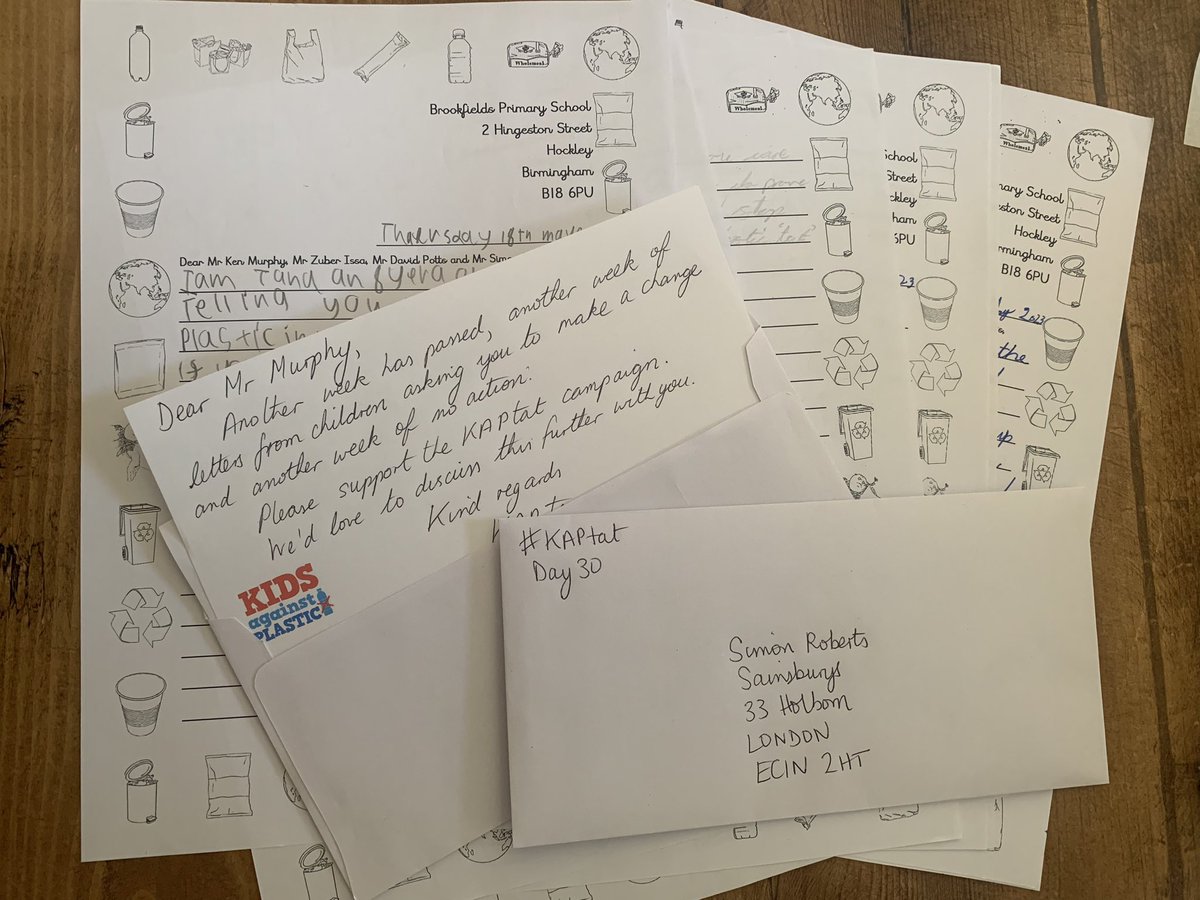 Wholemeal
Brookfields Primary School
2 Hingeston Street
Hockley
Birmingham
B18 6PU
Thuersday 18th may
Dear Mr Ken Murphy, Mr Zuber Issa, Mr David Potts and Mr Simo
I am
Telling you
Plastic in
If
Dear Mr Murphy,
Another week has passed, another week of
letters from children asking you to make a change
and another week of no action.
Please support the KAPtat campaign.
We'd love to discuss this further with you.
Kind regards
KIDS
against
PLASTIC
#KAPtat
Day 30
Simon Roberts
Sainsburys
33 Holborn
LONDON
EC1N 2HT
Wholemeal
School
Street
ckley
ham
6PU
23
Wholemeal
mary School
geston Street
Hockley
Birmingham
B18 6PU
2023
the